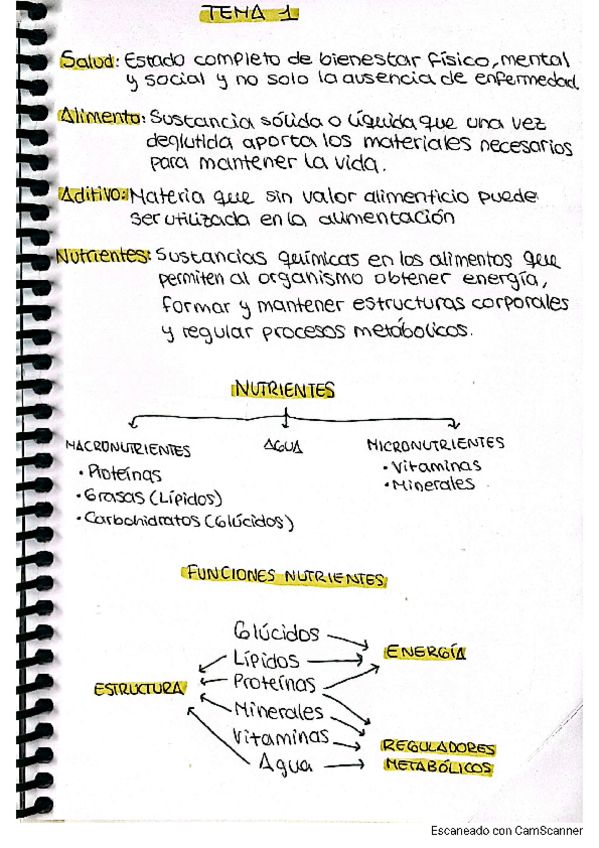 TEMA 1
Salud: Estado completo de bienestar físico, mental
y social y no solo la ausencia de enfermedad.
Alimento: Sustancia sólida o líquida que una vez
deglutida aporta los materiales necesarios
para mantener la vida.
Aditivo: Materia que sin valor alimenticio puede
ser utilizada en la alimentación
Nutrientes: Sustancias químicas en los alimentos que
permiten al organismo obtener energía,
formar y mantener estructuras corporales
y regular procesos metabólicos.
NUTRIENTES
MACRONUTRIENTES
• Proteínas
• Grasas (Lípidos)
• Carbohidratos (Glúcidos)
AGUA
MICRONUTRIENTES
• Vitaminas
• Minerales
FUNCIONES NUTRIENTES
ESTRUCTURA
Glúcidos
Lípidos
Proteínas
Minerales
Vitaminas
Agua
ENERGÍA
REGULADORES
METABÓLICOS
Escaneado con CamScanner